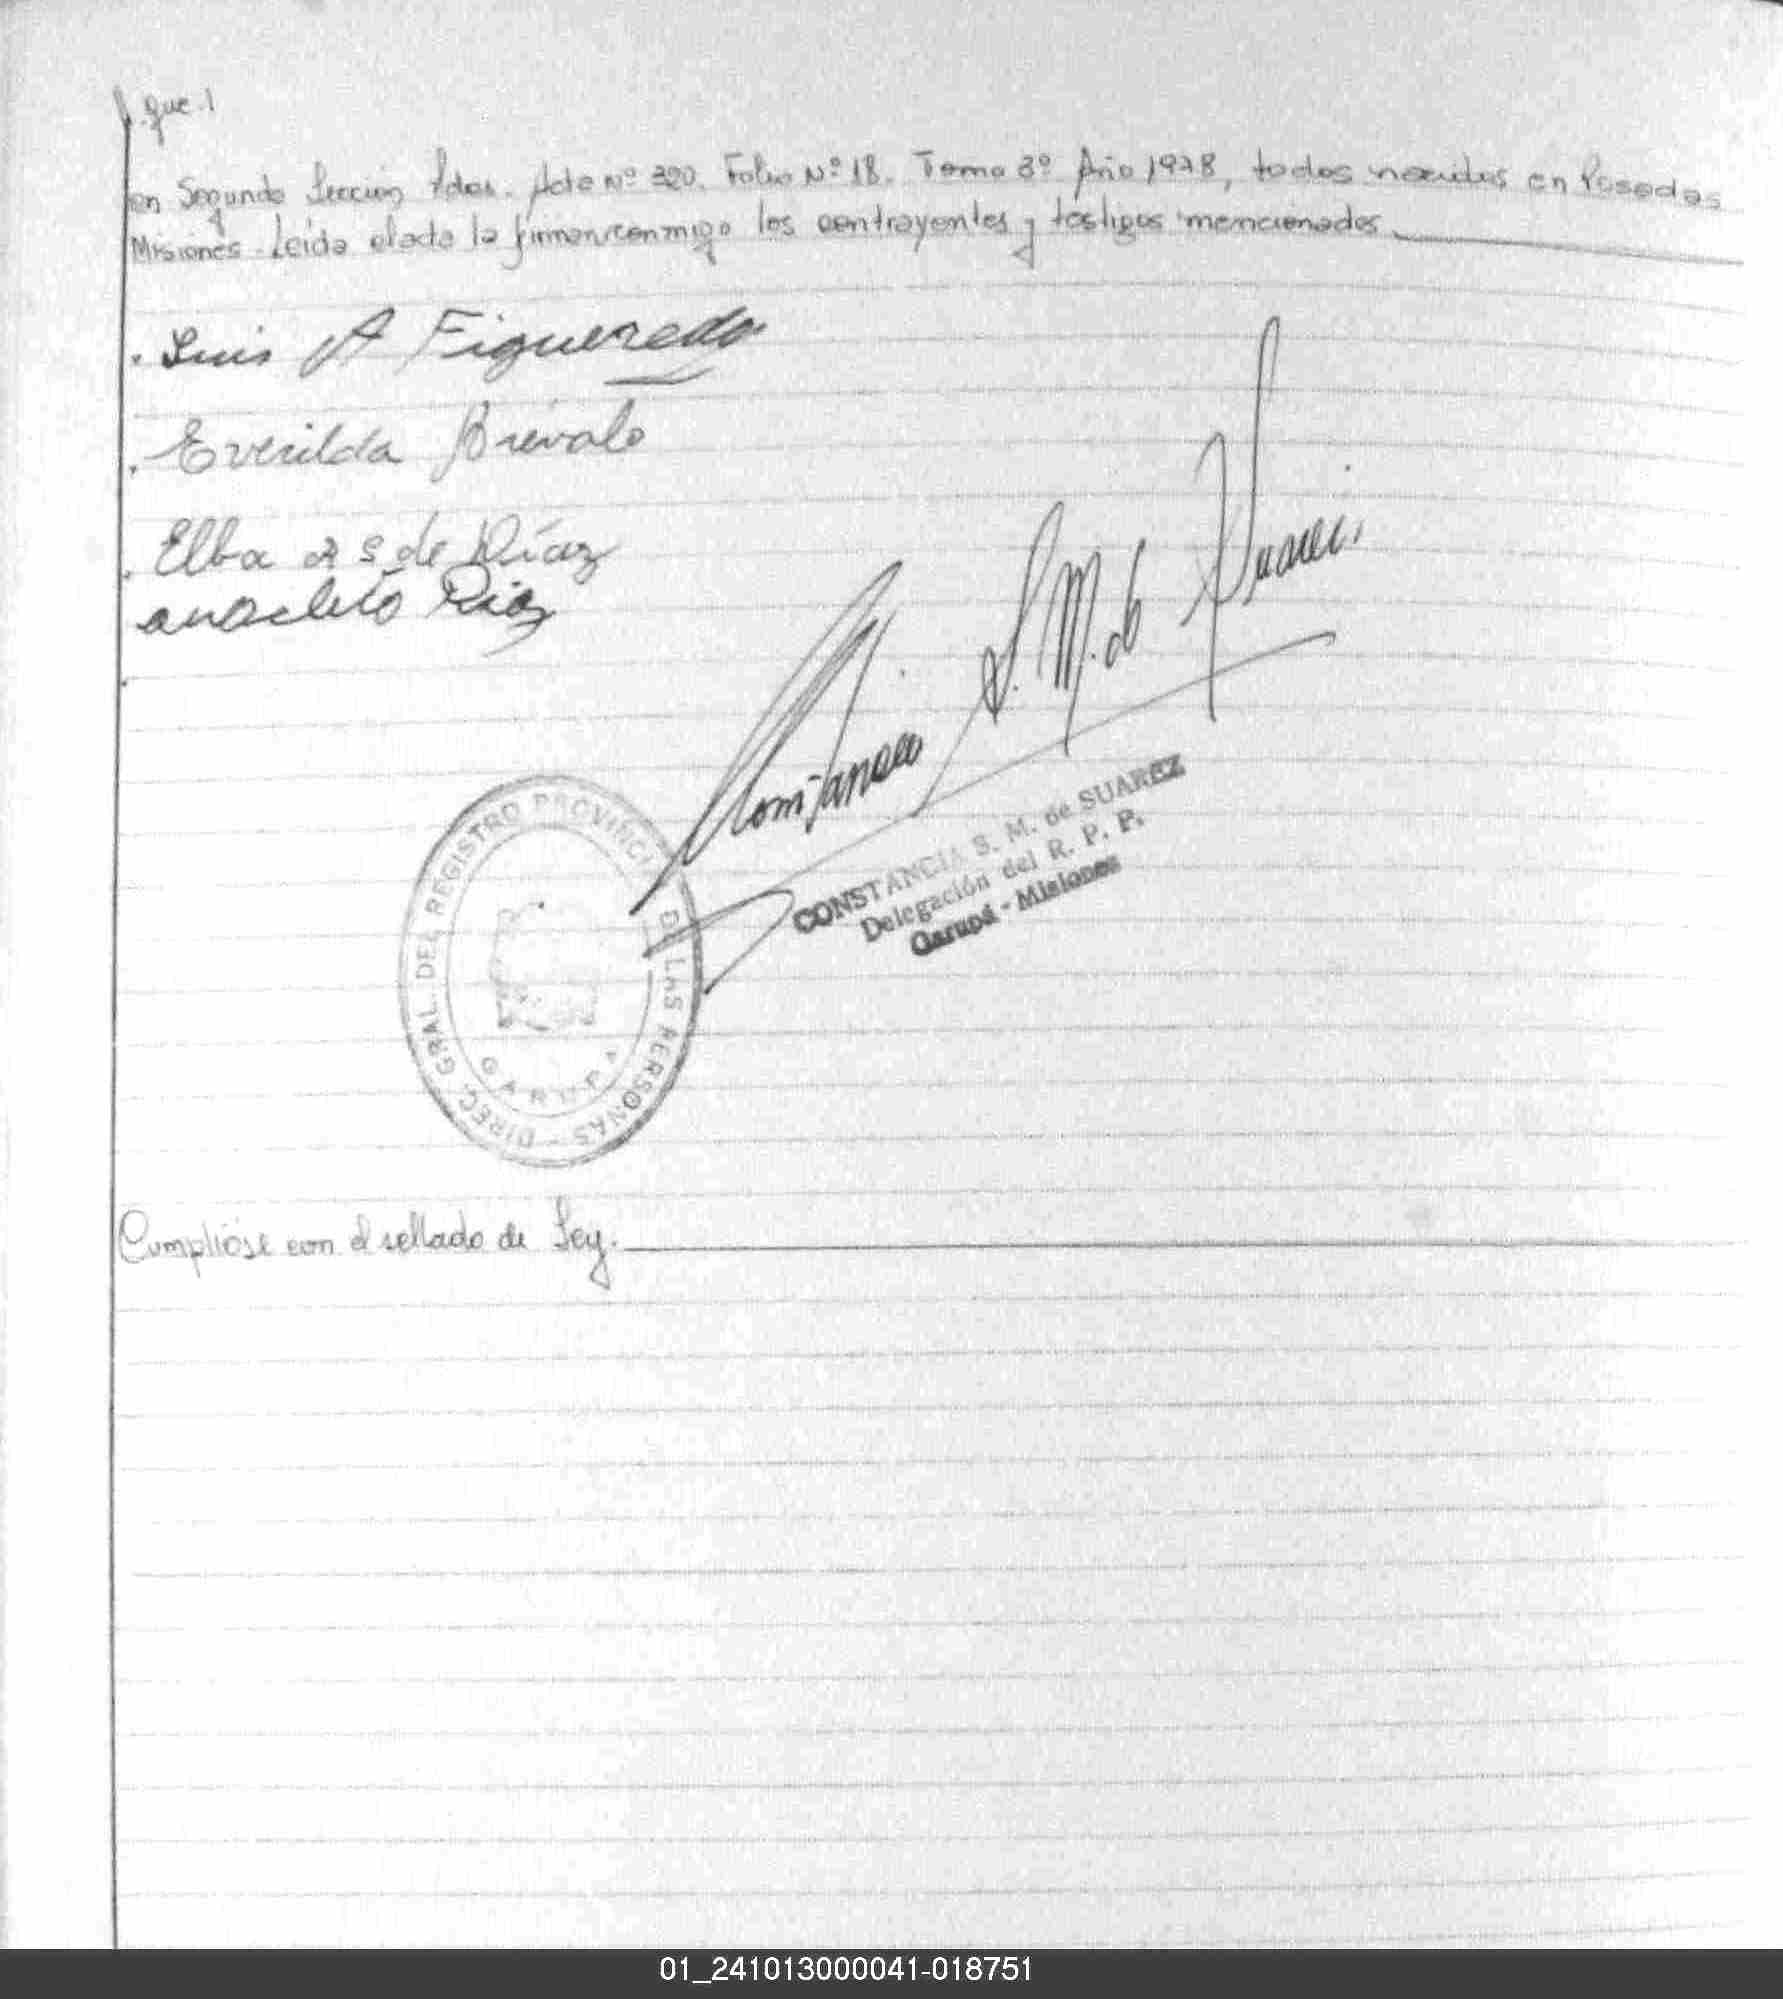 que.
en Segunda Sección Pdas. Acta Nº 320. Folio Nº 18. Tomo 3º Año 1978, todos nacidos en Posadas
Misiones. Leída el acta la firman conmigo los contrayentes y testigos mencionados
Luis A Figueredo
Everilda Arevalo
Elba R S de Díaz
anacleto Diaz
Constancia S. M. de Suarez
CONSTANCIA S. M. de SUAREZ
Delegación del R. P. P.
Garupá - Misiones
DIREC. GRAL. DEL REGISTRO PROVINCI DE LAS PERSONAS -
GARUPA
Cumplióse con el sellado de Ley.
01_241013000041-018751